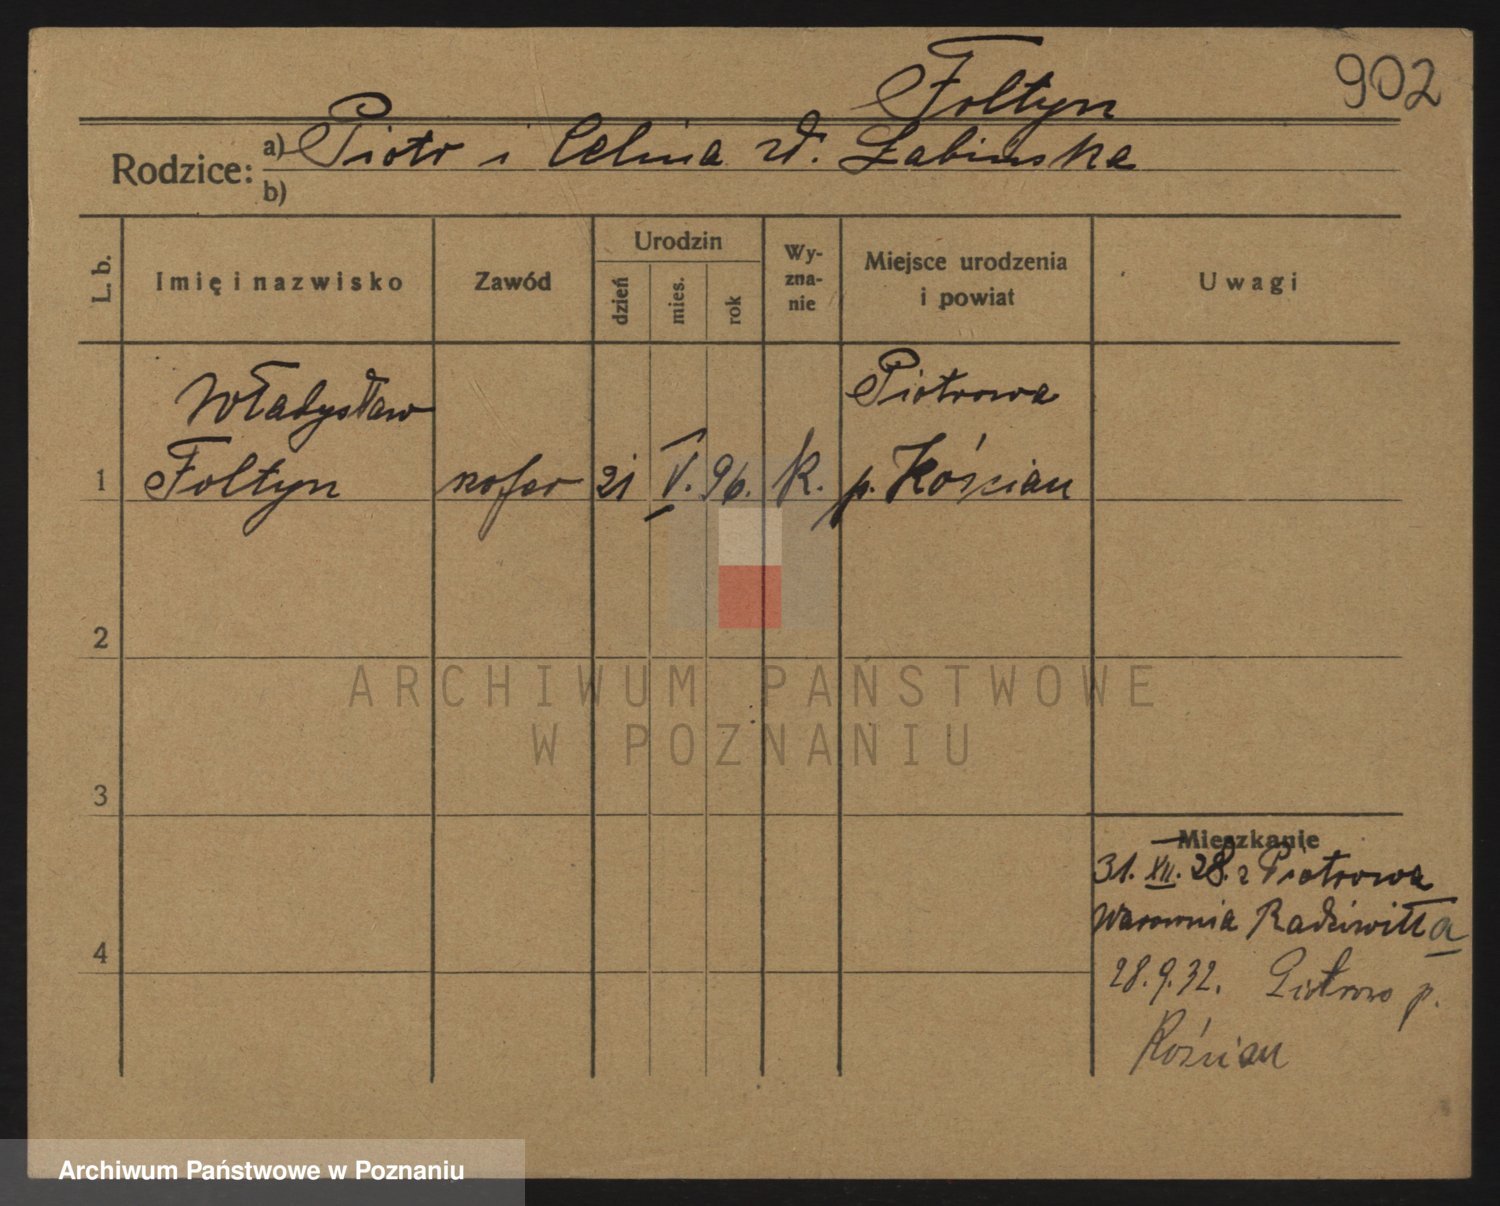 902
Foltyn
Rodzice: a) Piotr i Celina zd. Łabińska
b)
L. b. Imię i nazwisko Zawód Urodzin dzień mies. rok Wy-zna-nie Miejsce urodzenia i powiat Uwagi
Władysław Piotrowa
1 Foltyn szofer 21 V. 96. k. p. Kościan
2
ARCHIWUM PAŃSTWOWE
W POZNANIU
3
Mieszkanie
31. XII. 28. z Piotrowa
Warownia Radziwiłła
4
28.9.32. Piotrowo p.
Kościan
Archiwum Państwowe w Poznaniu